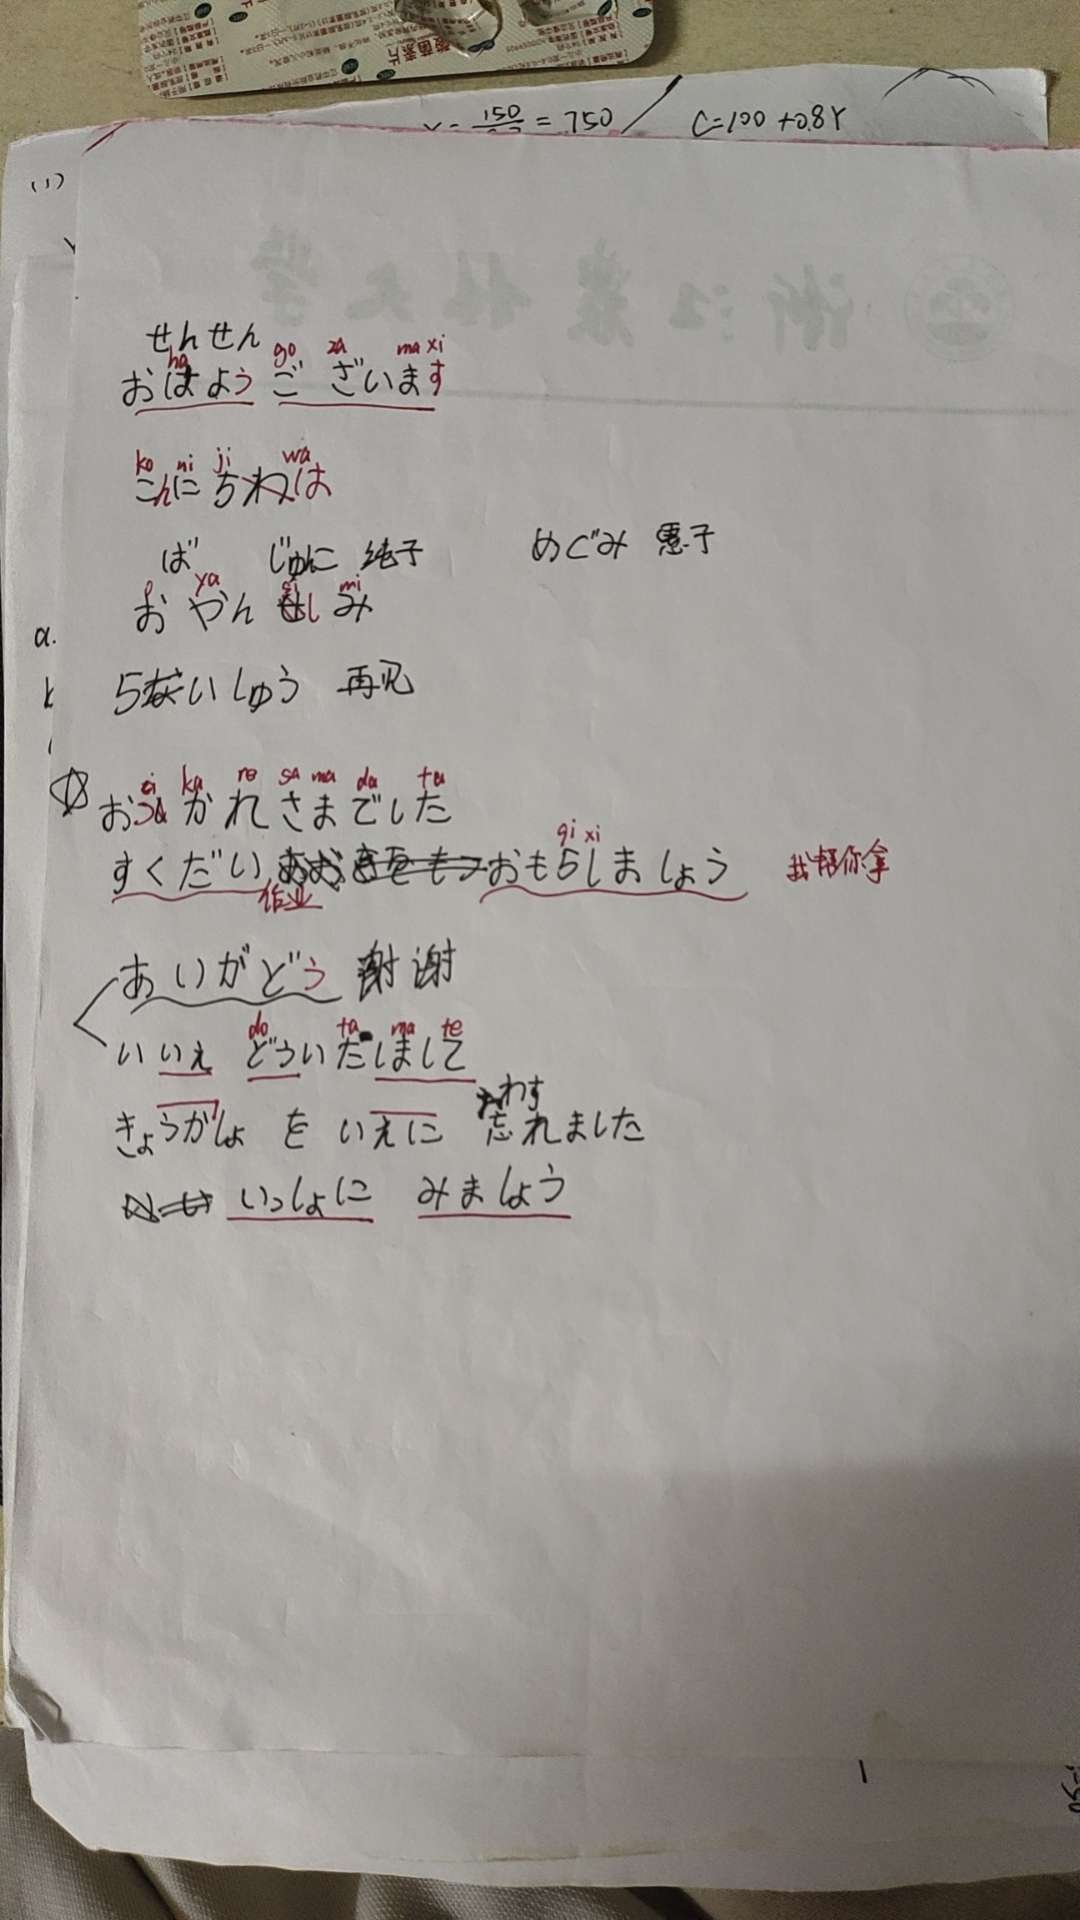 = 150 = 750
C=100+0.8Y
(1)
せんせん
ha go za ma xi
おはよう ございます
ko ni ji wa
こんにちわは
ば じゅに 純子 めぐみ 恵子
o ya mi
おやんしみ
a.
らないしゅう 再见
ka re sa ma da ta
おつかれさまでした
qi xi
すくだい おもらしましょう 我帮你拿
作业
あいがどう 谢谢
do ta ma te
いいえ どういたしまして
わす
きょうかしょ を いえに 忘れました
いっしょに みましょう